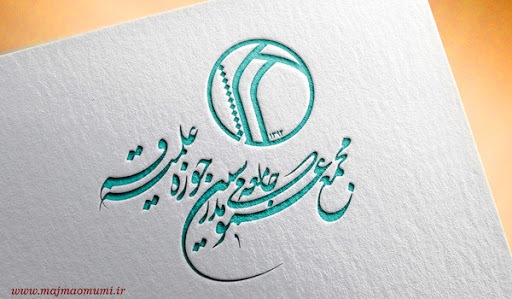 ۱۳۹۳
مجمع عمومی جامعه مدرسین حوزه علمیه قم
www.majmaomumi.ir